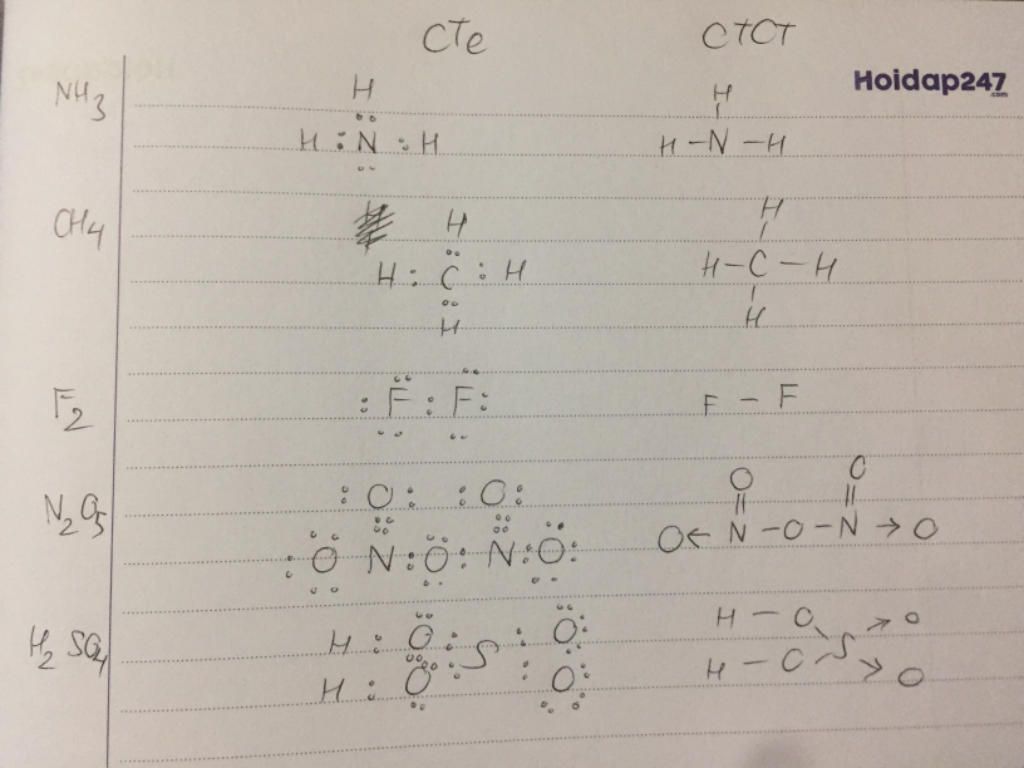 CTe CTCT
Hoidap247
.com
NH3
H
H : N : H
H
H - N - H
CH4
H
H : C : H
H
H
H - C - H
H
F2
: F : F :
F - F
N2O5
: O : : O :
: O N : O : N : O :
O O
O ← N - O - N → O
H2SO4
H : O : S : O :
H : O : : O :
H - O S → O
H - O → O